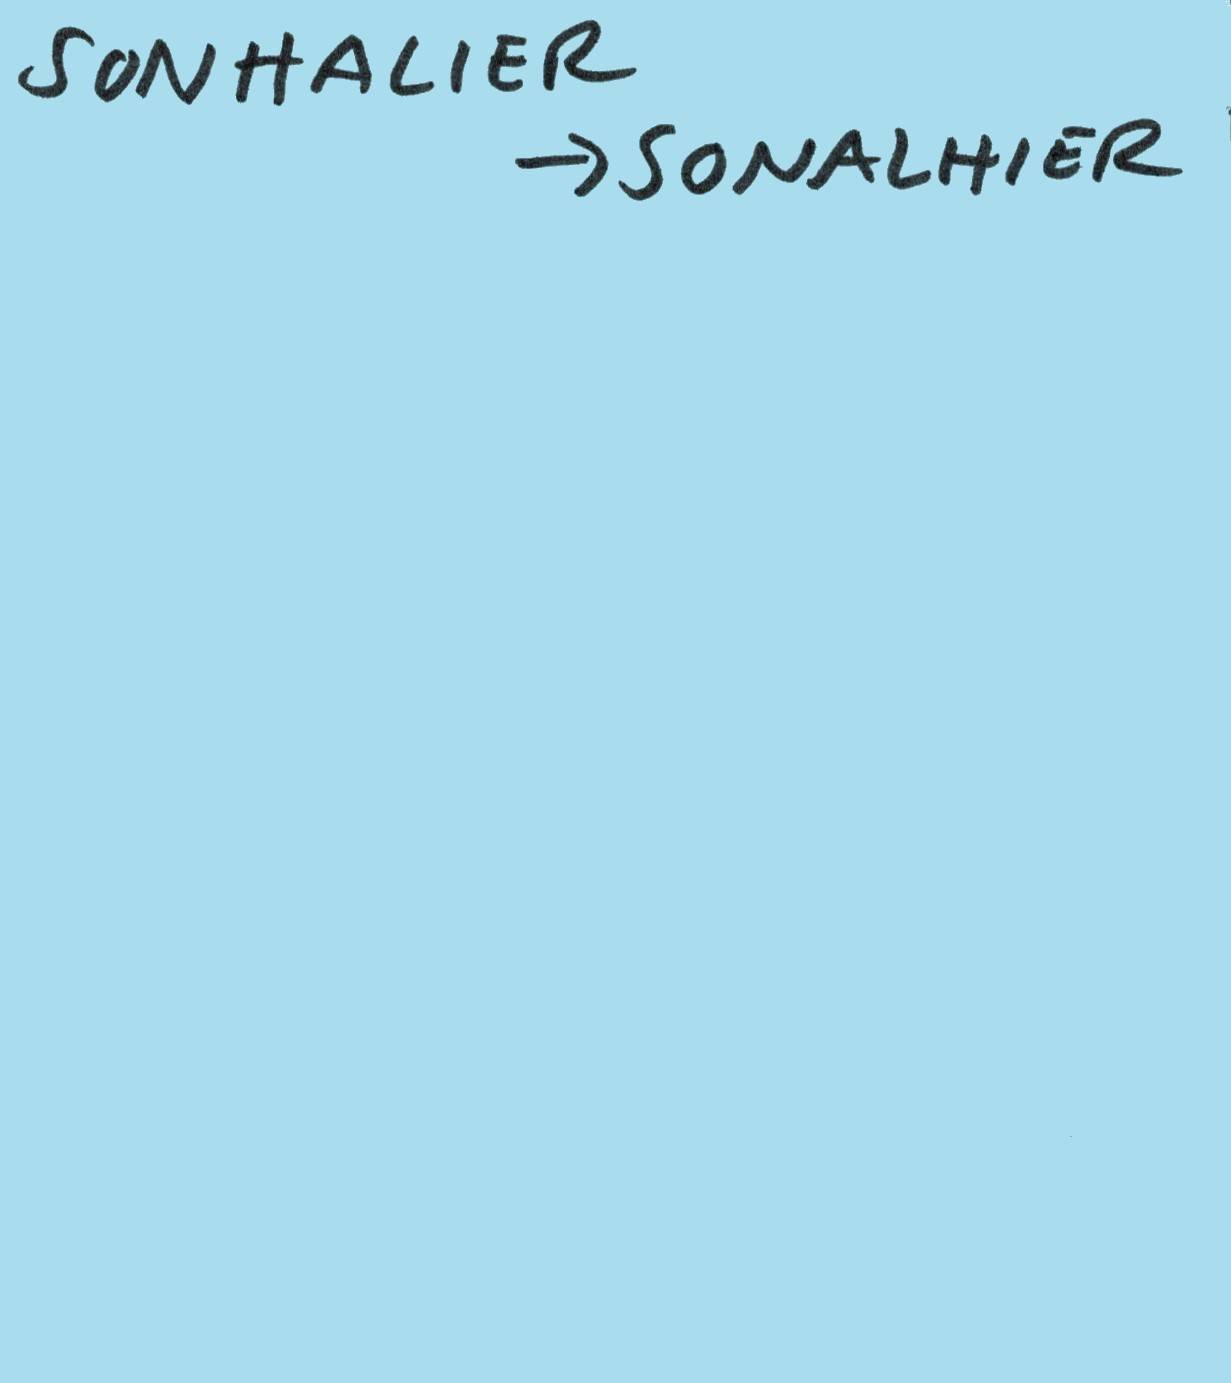 SONHALIER
→SONALHIER